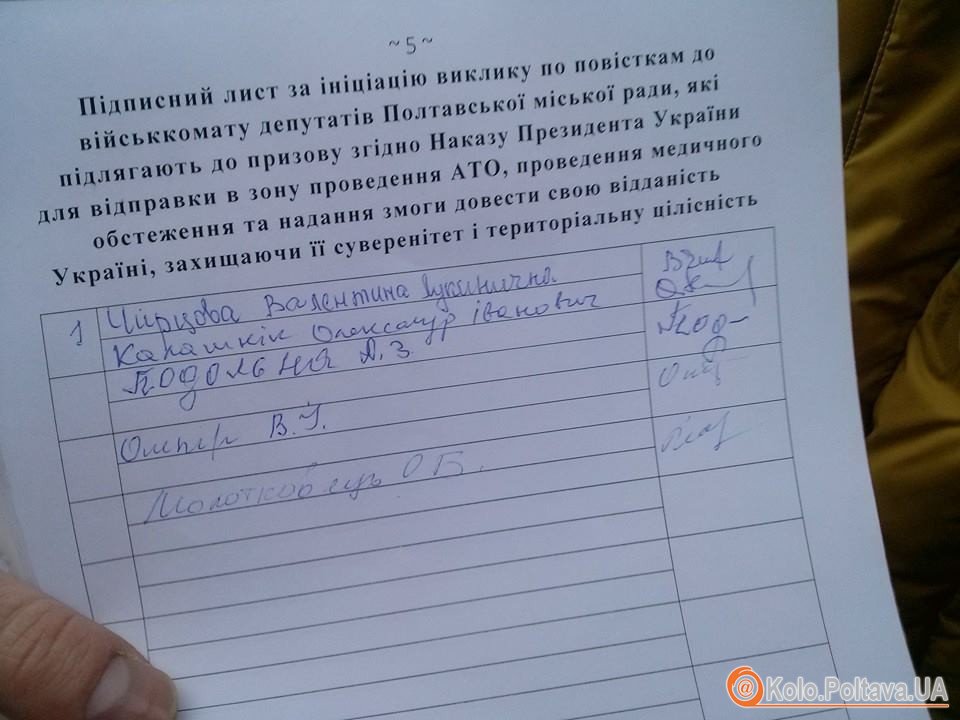 ~ 5 ~
Підписний лист за ініціацію виклику по повісткам до
військкомату депутатів Полтавської міської ради, які
підлягають до призову згідно Наказу Президента України
для відправки в зону проведення АТО, проведення медичного
обстеження та надання змоги довести свою відданість
Україні, захищаючи її суверенітет і територіальну цілісність
1 Валентина
Олександр Іванович
Подольная А.З.
В.І.
О.Б.
@Kolo.Poltava.UA